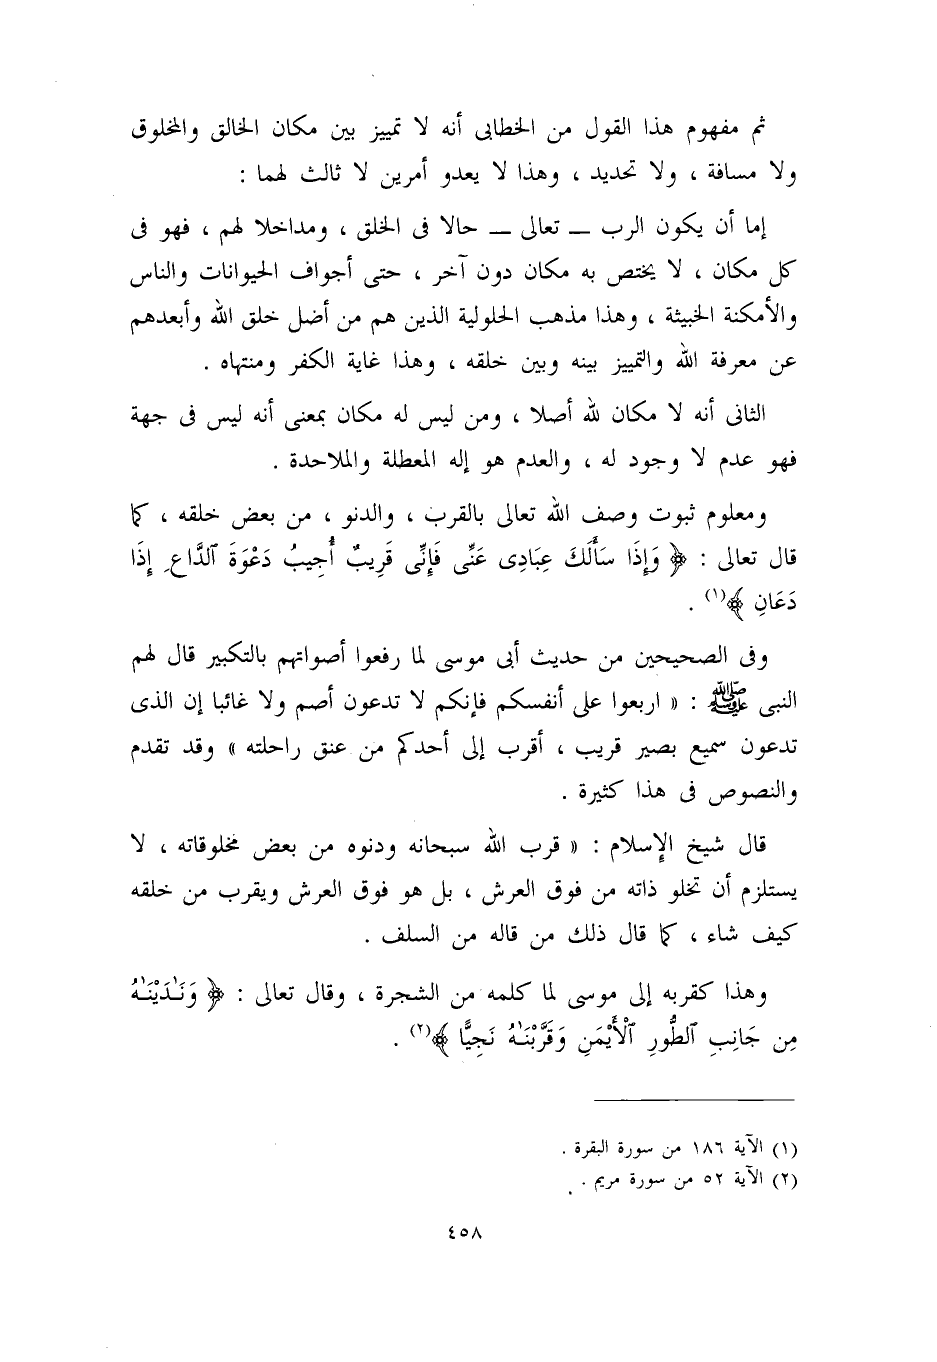 ثم مفهوم هذا القول من الخطابى أنه لا تمييز بين مكان الخالق والمخلوق
ولا مسافة ، ولا تحديد ، وهذا لا يعدو أمرين لا ثالث لهما :
إما أن يكون الرب ــ تعالى ــ حالا فى الخلق ، ومداخلا لهم ، فهو فى
كل مكان ، لا يختص به مكان دون آخر ، حتى أجواف الحيوانات والناس
والأمكنة الخبيثة ، وهذا مذهب الحلولية الذين هم من أضل خلق الله وأبعدهم
عن معرفة الله والتمييز بينه وبين خلقه ، وهذا غاية الكفر ومنتهاه .
الثانى أنه لا مكان لله أصلا ، ومن ليس له مكان بمعنى أنه ليس فى جهة
فهو عدم لا وجود له ، والعدم هو إله المعطلة والملاحدة .
ومعلوم ثبوت وصف الله تعالى بالقرب ، والدنو ، من بعض خلقه ، كما
قال تعالى : ﴿ وَإِذَا سَأَلَكَ عِبَادِى عَنِّى فَإِنِّى قَرِيبٌ أُجِيبُ دَعْوَةَ ٱلدَّاعِ إِذَا
دَعَانِ ﴾(١) .
وفى الصحيحين من حديث أبى موسى لما رفعوا أصواتهم بالتكبير قال لهم
النبى ﷺ : « اربعوا على أنفسكم فإنكم لا تدعون أصم ولا غائبا إن الذى
تدعون سميع بصير قريب ، أقرب إلى أحدكم من عنق راحلته » وقد تقدم
والنصوص فى هذا كثيرة .
قال شيخ الإسلام : « قرب الله سبحانه ودنوه من بعض مخلوقاته ، لا
يستلزم أن تخلو ذاته من فوق العرش ، بل هو فوق العرش ويقرب من خلقه
كيف شاء ، كما قال ذلك من قاله من السلف .
وهذا كقربه إلى موسى لما كلمه من الشجرة ، وقال تعالى : ﴿ وَنَـٰدَيْنَـٰهُ
مِن جَانِبِ ٱلطُّورِ ٱلْأَيْمَنِ وَقَرَّبْنَـٰهُ نَجِيًّا ﴾(٢) .
(١) الآية ١٨٦ من سورة البقرة .
(٢) الآية ٥٢ من سورة مريم .
٤٥٨